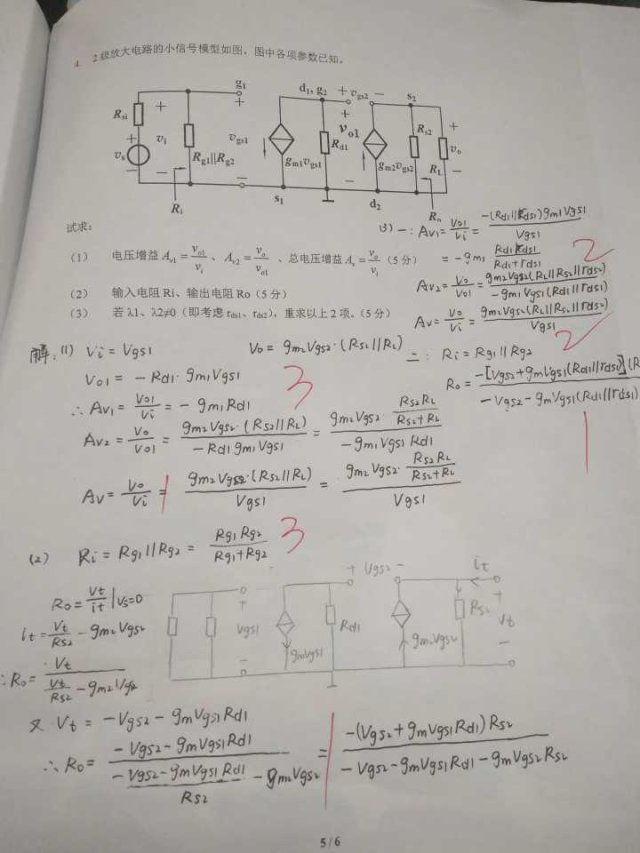 4. 2级放大电路的小信号模型如图,图中各项参数已知。
g₁
d₁, g₂ + vgs2 − s₂
Rsi + + vgs1 vo1 Rs2 +
vi Rd1 vo
vs Rg1||Rg2 gm1vgs1 gm2vgs2 RL
Ri s₁ d₂ Ro
试求:
(1) 电压增益 Av1=vo1/vi、Av2=vo/vo1、总电压增益 Av=vo/vi(5分)
(2) 输入电阻Ri、输出电阻Ro(5分)
(3) 若λ1、λ2≠0(即考虑rds1、rds2),重求以上2项。(5分)
(3) 一: Av1 = Vo1/Vi = −(Rd1||rds1)gm1Vgs1 / Vgs1
= −gm1 Rd1 rds1 / (Rd1+rds1)
2
Av2 = Vo/Vo1 = gm2Vgs2(RL||Rs2||rds2) / −gm1Vgs1(Rd1||rds1)
Av = Vo/Vi = gm2Vgs2(RL||Rs2||rds2) / Vgs1
2
二: Ri = Rg1||Rg2
Ro = −[Vgs2+gmVgs1(Rd1||rds1)](R / −Vgs2−gmVgs1(Rd1||rds1)
解:(1) Vi = Vgs1 Vo = gm2Vgs2·(Rs2||RL)
Vo1 = −Rd1·gm1Vgs1
3
∴ Av1 = Vo1/Vi = −gm1Rd1
Av2 = Vo/Vo1 = gm2Vgs2·(Rs2||RL) / −Rd1gm1Vgs1 = gm2Vgs2·Rs2RL/(Rs2+RL) / −gm1Vgs1Rd1
Av = Vo/Vi = gm2Vgs2·(Rs2||RL) / Vgs1 = gm2Vgs2·Rs2RL/(Rs2+RL) / Vgs1
(2) Ri = Rg1||Rg2 = Rg1Rg2 / (Rg1+Rg2)
3
Ro = Vt/it |Vs=0
it = Vt/Rs2 − gm2Vgs2
∴ Ro = Vt / (Vt/Rs2 − gm2Vgs2)
+ Vgs2 − it
+ Vgs1 − Rd1 Rs2 + Vt −
gmVgs1 gm2Vgs2
又 Vt = −Vgs2 − gmVgs1Rd1
∴ Ro = (−Vgs2−gmVgs1Rd1) / ((−Vgs2−gmVgs1Rd1)/Rs2 − gm2Vgs2) = −(Vgs2+gmVgs1Rd1)Rs2 / (−Vgs2−gmVgs1Rd1−gmVgs2Rs2)
5 / 6